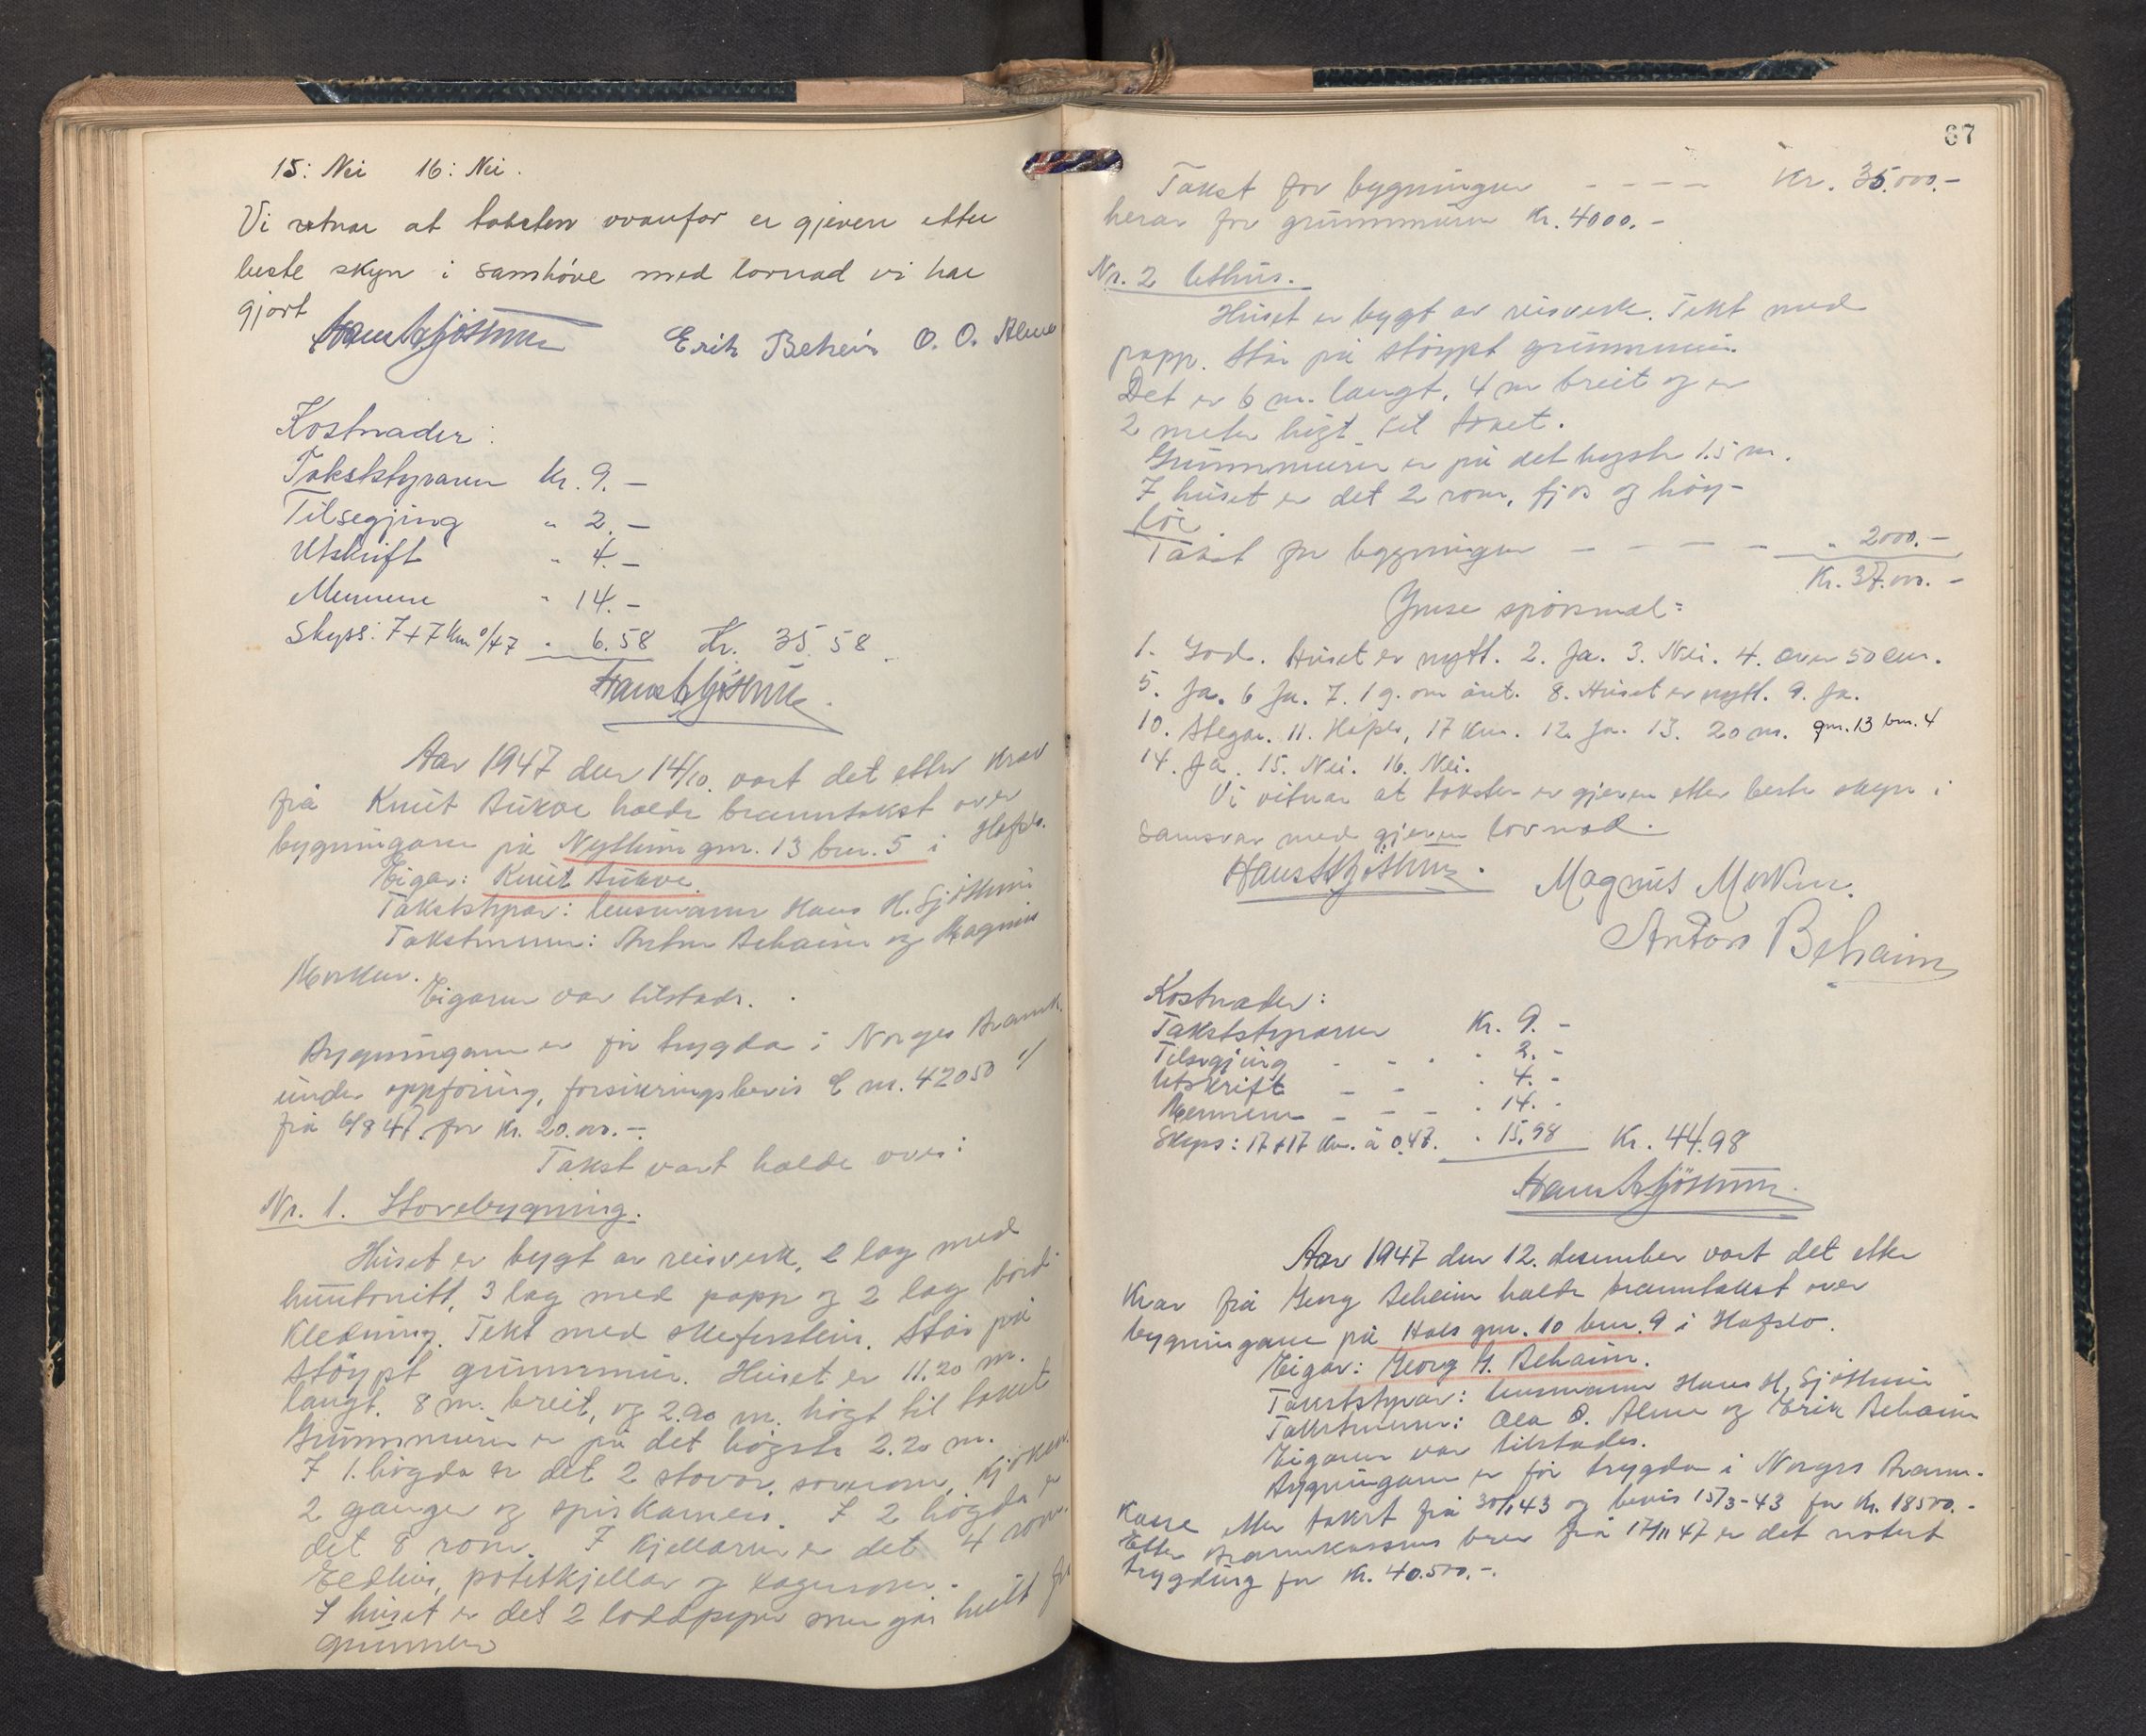 15: Nei 16: Nei.
Vi vitnar at taksten ovanfor er gjeven etter
beste skyn i samhöve med lovnad vi har
gjort
Hans H Sjöthun Erik Beheim O. O. Alme
Kostnader:
Takststyraren Kr. 9.—
Tilsegjing " 2.—
Utskrift " 4.—
Mennene " 14.—
Skyss: 7+7 km 0/47 " 6.58 Kr. 35.58
Hans H Sjöthun.
Aar 1947 den 14/10. vart det etter krav
frå Knut Bukve halde branntakst over
bygningane på Nytthun gnr. 13 bnr. 5 i Hafslo.
Eigar: Knut Bukve.
Takststyrar: lensmann Hans H. Sjöthun
Takstmenn: Anton Beheim og Magnus
Morken.
Eigaren var tilstade.
Bygningane er för trygda i Norges Brannk.
under oppföring, forsikringsbevis E nr. 42050
frå 6/8 47. for Kr. 20.000.—.
Takst vart halde over:
Nr. 1. Stovebygning.
Huset er bygt av reisverk, 2 lag med
huntonitt, 3 lag med papp og 2 lag bord
kledning. Tekt med skiferstein. Står på
stöypt grunnmur. Huset er 11.20 m.
langt. 8 m. breit, og 2.90 m. högt til taket
Grunnmuren er på det högste 2.20 m.
I 1. högda er det 2 stovor, soverom, kjöken.
2 ganger og spiskamers. I 2 högda er
det 8 rom. I kjellaren er det 4 rom.
Eldhus, potetkjellar og lagerrom.
I huset er det 2 loddpipor som går heilt frå
grunnen
67
Takst for bygningen - - - - Kr. 35.000.-
herav for grunnmuren Kr. 4000.-
Nr. 2 Uthus.
Huset er bygt av reisverk. Tekt med
papp. Står på stöypt grunnmur.
Det er 6 m. langt, 4 m breit og er
2 meter högt til taket.
Grunnmuren er på det högste 1.5 m.
I huset er det 2 rom, fjos og höy-
löe
Takst for bygningen - - - - " 2000.-
Kr. 37.000.-
Ymse spörsmål:
1. God. Huset er nytt. 2. Ja. 3. Nei. 4. over 50 cm.
5. Ja. 6 Ja. 7. 1 g. om året. 8. Huset er nytt. 9. Ja.
10. Stegar. 11. Hafslo, 17 km. 12. Ja. 13. 20 m. gnr. 13 bnr. 4
14. Ja. 15. Nei. 16. Nei.
Vi vitnar at taksten er gjeven etter beste skyn i
samsvar med gjeven lovnad.
Hans H Sjöthun. Magnus Morken.
Anton Beheim
Kostnader:
Takststyraren Kr. 9.-
Tilsegjing - - " 2.-
Utskrift - - " 4.-
Mennene - - - " 14.-
Skyss: 17+17 km. à 0.47. " 15.98 Kr. 44.98
Hans H Sjöthun.
Aar 1947 den 12. desember vart det etter
krav frå Georg Beheim halde branntakst over
bygningane på Hals gnr. 10 bnr. 9 i Hafslo.
Eigar: Georg G. Beheim.
Takststyrar: lensmann Hans H. Sjöthun
Takstmenn: Ola O. Alme og Erik Beheim
Eigaren var tilstades.
Bygningane er för trygda i Norges Brann-
kasse etter takst frå 30/1 43 og bevis 15/3-43 for Kr. 18500.-
Etter Brannkassens brev frå 17/11 47 er det notert
trygding for Kr. 40.500.-.